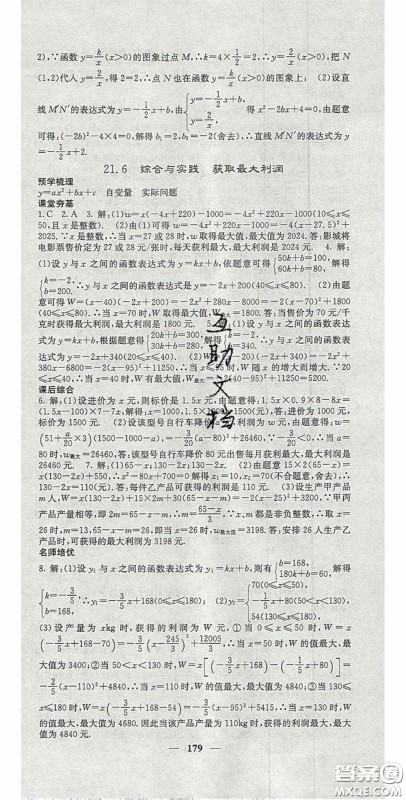 2),∵函数y=k/x(x>0)的图象过点M,∴k=4×1/2=2,∴y=2/x(x>0),把N
(1,2)代入y=2/x,得2=2,∴点N也在函数的图象上; (2)设直
线M′N′的表达式为y=-1/2x+b,由{y=-1/2x+b, y=2/x 得x²-2bx+4=0,由题意
可得:(-2b)²-4×4=0,解得b₁=2,b₂=-2(舍去),∴直线M′N′的表达式为
y=-1/2x+2.
21.6 综合与实践 获取最大利润
预学梳理
y=ax²+bx+c 自变量 实际问题
课堂夯基
1.C 2.A 3.解:(1)w=x(-4x+220)-1000=-4x²+220x-1000(10≤x≤
50,且x是整数). (2)由(1)可得w=-4x²+220x-1000=-4(x-27.5)²+
2025.∵x是整数,∴当x=27或28时,w取得最大值,最大值为2024.答:影城将
电影票售价定为27元/张或28元/张时,每天获利最大,最大利润是2024元. 4.解:
(1)设y与x之间的函数表达式为y=kx+b,依题意可得{50k+b=100, 60k+b=80,
解得{k=-2, b=200. 故y与x之间的函数表达式是y=-2x+200. (2)由题
意可得W=(x-40)(-2x+200)=-2x²+280x-8000=-2(x-70)²+
1800.故当x=70时,W取得最大值,W最大=1800.答:当售价为70元/千
克时获得最大利润,最大利润是1800元. 5.解:(1)设y与x之间的函数表
达式为y=kx+b,根据题意得{20k+b=300, 30k+b=280, 解得{k=-2, b=340. 所以y与x之间的函数
表达式为y=-2x+340(20≤x≤40). (2)W=(x-20)(-2x+340)=-2x²+
380x-6800=-2(x-95)²+11250,∵当x≤95时,W随x的增大而增大.∵20
≤x≤40,∴当x=40时,W有最大值,W最大=-2(40-95)²+11250=5200.
课后综合
6.解:(1)设进价为x元,则标价是1.5x元,由题意得:1.5x×0.9×8-8x=
(1.5x-100)×7-7x,解得:x=1000,1.5×1000=1500(元).答:进价为1000元,标
价为1500元. (2)设该型号自行车降价a元,利润为w元,由题意得:w=
(51+a/20×3)(1500-1000-a)=-3/20(a-80)²+26460,∵-3/20<0,∴当a=
80时,w最大=26460.答:该型号自行车降价80元出售每月获利最大,最大利润是
26460元. 7.解:(1)65-x;130-2x;130-2x. (2)由题意得15×2(65-x)=
x(130-2x)+550,∴x²-80x+700=0.解得x₁=10,x₂=70(不合题意,舍去).∴130
-2x=110.答:每件乙产品可获得的利润是110元. (3)设安排m人生产甲产品,W
=x(130-2x)+15×2m+30(65-x-m)=-2(x-25)²+3200.∵甲丙
产品产量相等,即2m=65-x-m,∴m=(65-x)/3,∵x、m都是非负整数,∴取x=
26时,m=13,65-x-m=26,即当x=26时,w最大值=3198.答:安排26人生产乙
产品时,可获得的最大利润为3198元.
名师培优
8.解:(1)设y₁与x之间的函数表达式为y₁=kx+b,则有{b=168, 180k+b=60, 解得
{k=-3/5, b=168, ∴y₁=-3/5x+168(0≤x≤180). (2)y₂={70(0≤x≤50), -1/5x+80(50<x<130), 54(130≤x≤180).
(3)设产量为xkg时,获得的利润为W元.①当0≤x≤50时,W=
x(-3/5x+168-70)=-3/5(x-245/3)²+12005/3,∴当x=50时,W的值最大,最
大值为3400;②当50<x<130时,W=x[(-3/5x+168)-(-1/5x+80)]=
-2/5(x-110)²+4840,∴当x=110时,W的值最大,最大值为4840;③当130≤
x≤180时,W=x(-3/5x+168-54)=-3/5(x-95)²+5415,∴当x=130时,W
的值最大,最大值为4680.因此当该产品产量为110kg时,获得的利润最大,最大
值为4840元.
179
互助文档
答案圈
MXQE.COM